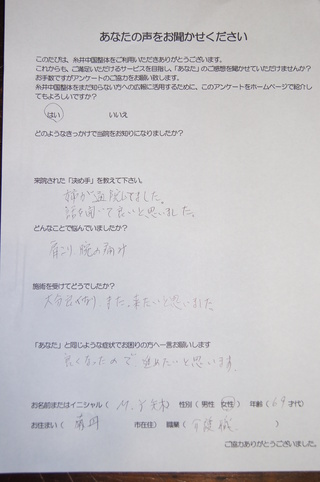 あなたの声をお聞かせください
このたびは、糸井中国整体をご利用いただきありがとうございます。
これからも、ご満足いただけるサービスを目指し、「あなた」のご感想を聞かせていただけませんか?
お手数ですがアンケートのご協力をお願い致します。
糸井中国整体をまだ知らない方への広報に活用するために、このアンケートをホームページで紹介し
てもよろしいですか?
はい いいえ
どのようなきっかけで当院をお知りになりましたか?
来院された「決め手」を教えて下さい。
婦が通院してました。
話を聞いて良いと思いました。
どんなことで悩んでいましたか?
肩こり 腕の痛み
施術を受けてどうでしたか?
また、来たいと思いました
「あなた」と同じような症状でお困りの方へ一言お願いします
良くなったので 進めたいと思います。
お名前またはイニシャル ( M.Y ) 性別 ( 男性 女性 ) 年齢 ( 69 才代)
お住まい ( 市在住) 職業 ( 介護職 )
ご協力ありがとうございました。